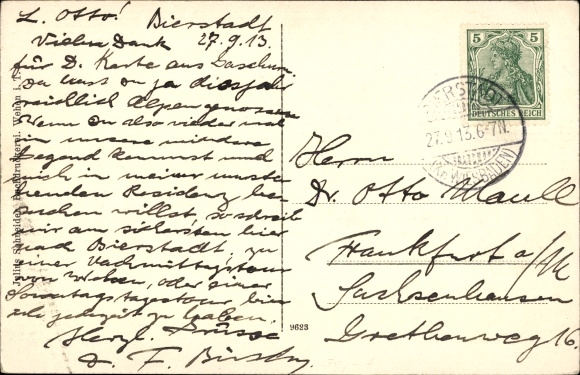 L. Otto! Bierstadt
Vielen Dank 27.9.13.
für D. Karte aus
Da hast Du ja dieses Jahr
reichlich Alpen genossen
Wenn Du also wieder mal
in unsere mindere
Gegend kommst und
mich in meiner
Residenz be-
suchen willst, so schreib
mir am sichersten hier
nach Bierstadt, zu
einer Nachmittagstour
von Wehen, oder einer
Sonntagstagestour bin
ich jederzeit zu haben.
Herzl. Grüsse
D. F.
Julius Schneider, Buchdruckerei, Wehen i. T.
9623
5 5
DEUTSCHES REICH
BIERSTADT
27.9.13.6-7N.
WIESBADEN
Herrn
Dr. Otto Maull
Frankfurt a/M
Sachsenhausen
Grethenweg 16.